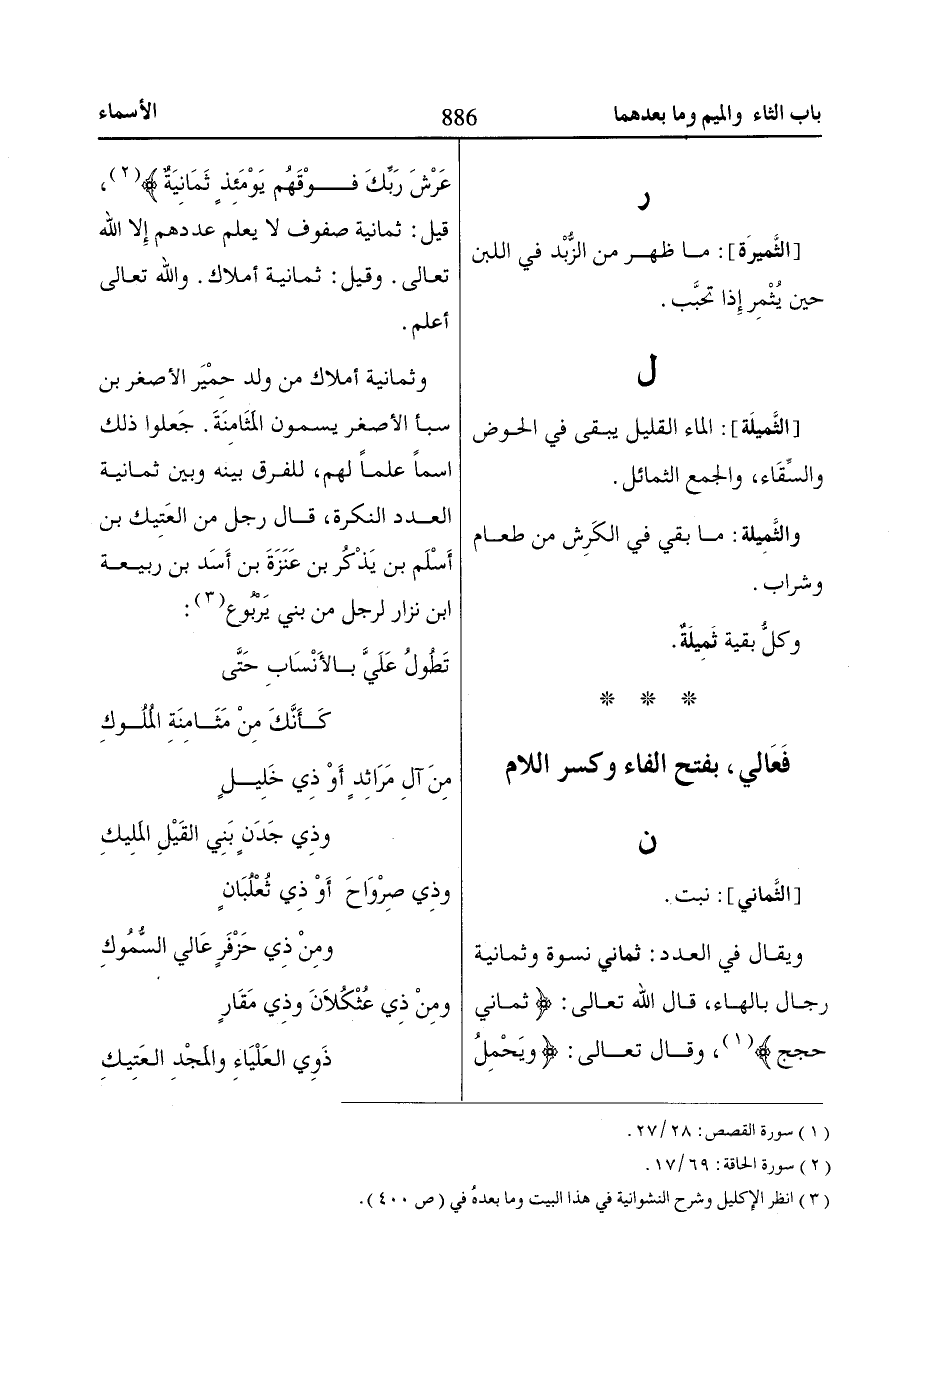 باب الثاء والميم وما بعدهما
886
الأسماء
ر
[الثَّميرَة]: ما ظهر من الزُّبْد في اللبن
حين يُثْمِر إذا تحبَّب.
ل
[الثَّميلَة]: الماء القليل يبقى في الحوض
والسِّقَاء، والجمع الثمائل.
والثَّمِيلة: ما بقي في الكَرِش من طعام
وشراب.
وكلُّ بقية ثَمِيلَةٌ.
* * *
فَعَالي، بفتح الفاء وكسر اللام
ن
[الثَّماني]: نبت.
ويقال في العدد: ثماني نسوة وثمانية
رجال بالهاء، قال الله تعالى: ﴿ ثماني
حجج ﴾(١)، وقال تعالى: ﴿ ويَحْمِلُ
عَرْشَ رَبِّكَ فوْقَهُم يَوْمَئِذٍ ثَمَانِيَةٌ ﴾(٢)،
قيل: ثمانية صفوف لا يعلم عددهم إلا الله
تعالى. وقيل: ثمانية أملاك. والله تعالى
أعلم.
وثمانية أملاك من ولد حِمْيَر الأصغر بن
سبأ الأصغر يسمون المَثَامِنَةَ. جَعلوا ذلك
اسماً علماً لهم، للفرق بينه وبين ثمانية
العدد النكرة، قال رجل من العَتِيك بن
أَسْلَم بن يَذْكُر بن عَنَزَةَ بن أَسَد بن ربيعة
ابن نزار لرجل من بني يَرْبُوع(٣):
تَطُولُ عَلَيَّ بالأَنْسَابِ حَتَّى
كَأَنَّكَ مِنْ مَثَامِنَةِ المُلُوكِ
مِنَ آلِ مَرَاثِدٍ أَوْ ذِي خَلِيلٍ
وذِي جَدَنٍ بَنِي القَيْلِ المَلِيكِ
وذِي صِرْوَاحَ أَوْ ذِي ثُعْلُبَانٍ
ومِنْ ذِي حَزْفَرٍ عَالي السُّمُوكِ
ومِنْ ذِي عُثْكُلاَنَ وذِي مَقَارٍ
ذَوِي العَلْيَاءِ والمَجْدِ العَتِيكِ
(١) سورة القصص: ٢٨/٢٧.
(٢) سورة الحاقة: ٦٩/١٧.
(٣) انظر الإكليل وشرح النشوانية في هذا البيت وما بعدهُ في (ص ٤٠٠).